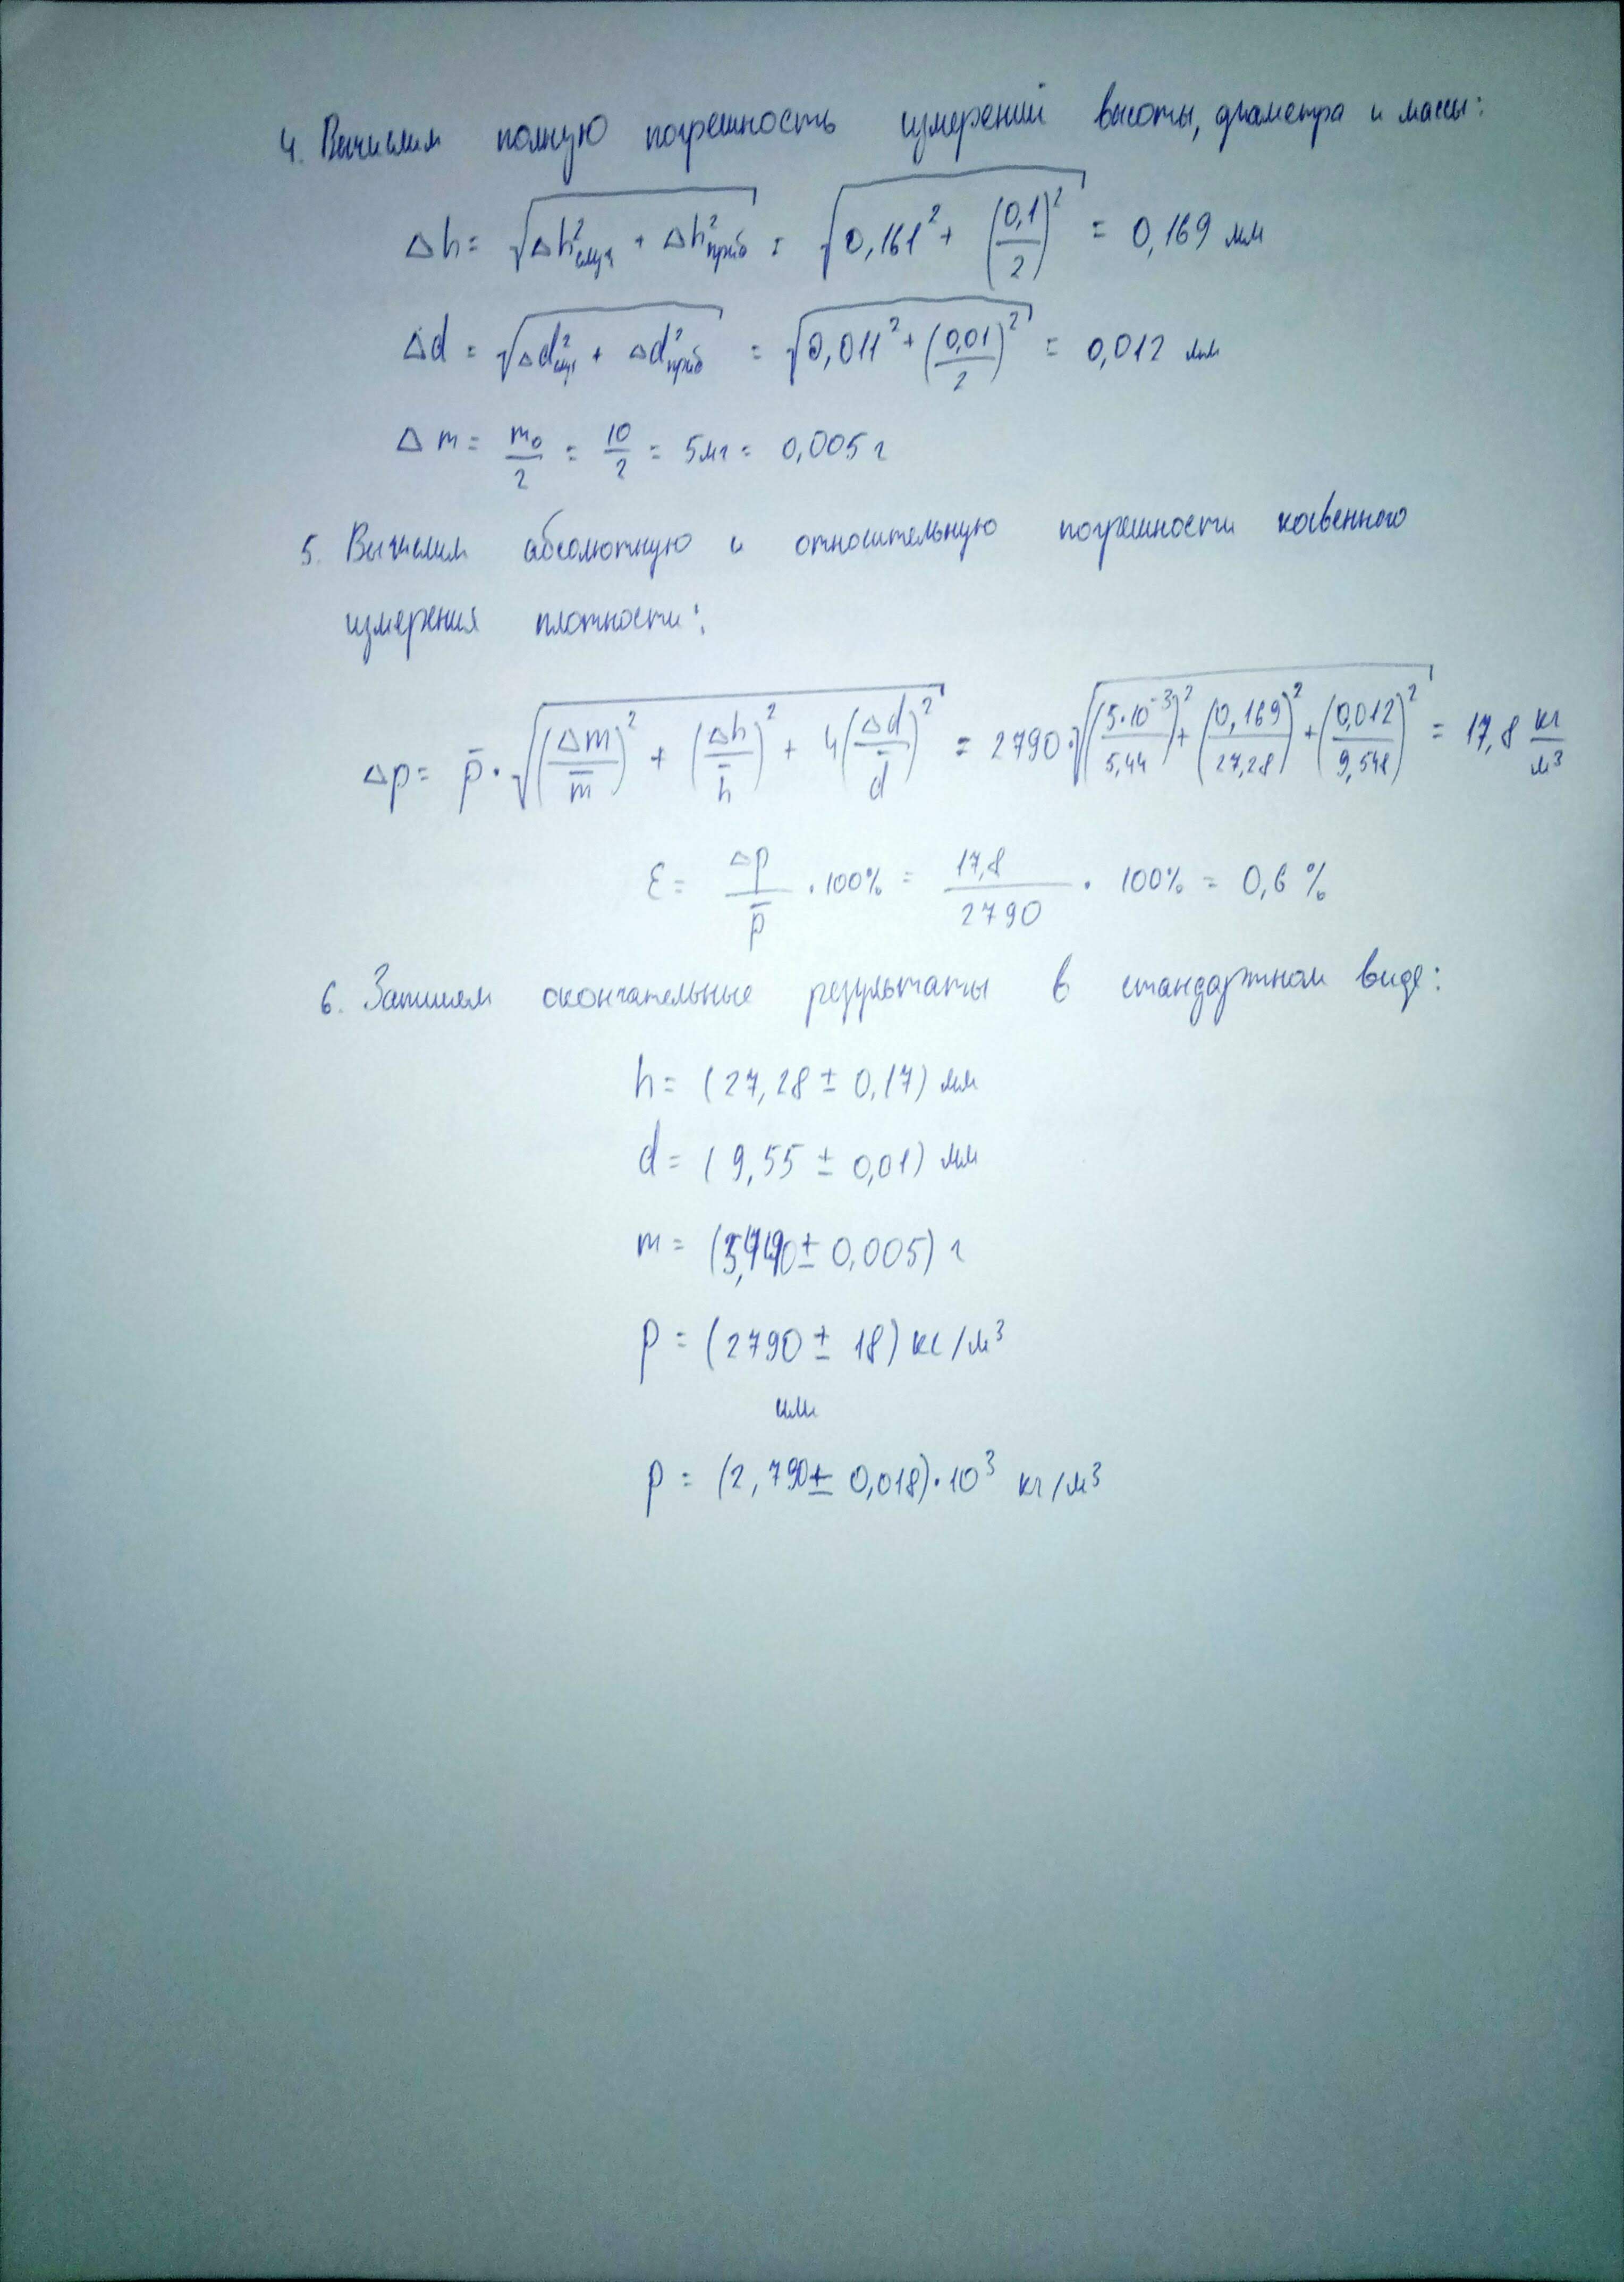 4. Вычислим полную погрешность измерений высоты, диаметра и массы:
Δh = √(Δh²случ + Δh²приб) = √(0,161² + (0,1/2)²) = 0,169 мм
Δd = √(Δd²случ + Δd²приб) = √(0,011² + (0,01/2)²) = 0,012 мм
Δm = m₀/2 = 10/2 = 5мг = 0,005 г
5. Вычислим абсолютную и относительную погрешности косвенного
измерения плотности:
Δρ = ρ̄ · √((Δm/m̄)² + (Δh/h̄)² + 4(Δd/d̄)²) = 2790 · √((5·10⁻³/5,44)² + (0,169/27,28)² + (0,012/9,548)²) = 17,8 кг/м³
ε = Δρ/ρ̄ · 100% = 17,8/2790 · 100% = 0,6 %
6. Запишем окончательные результаты в стандартном виде:
h = (27,28 ± 0,17) мм
d = (9,55 ± 0,01) мм
m = ( ± 0,005) г
ρ = (2790 ± 18) кг/м³
или
ρ = (2,790 ± 0,018)·10³ кг/м³